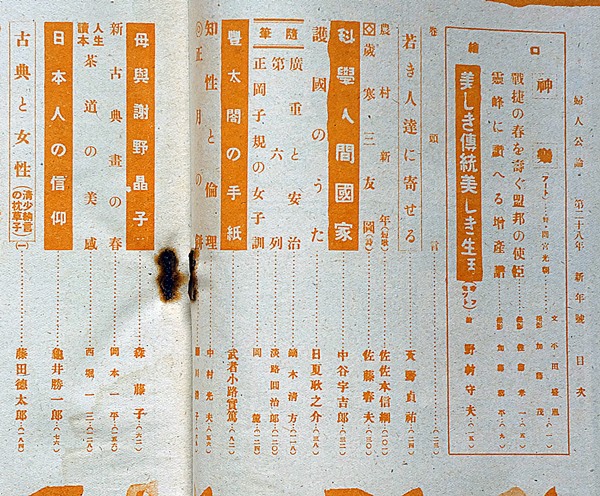 婦人公論・第二十八年 新年號 目次
口繪
神
戰捷の春を壽ぐ盟邦の使臣
靈峰に讃へる增產譜
美しき傳統美しき生活
野村守夫
卷頭言
若き人達に寄せる 天野貞祐
農村新年 佐佐木信綱
歲寒三友圖(詩) 佐藤春夫
科學人間國家 中谷宇吉郎
護國のうた 日夏耿之介
隨筆
廣重と安治 鏑木淸方
第六列 淡路圓治郎
正岡子規の女子訓 岡麓
豐太閤の手紙 武者小路實篤
知性と倫理 中村光夫
正月の
母與謝野晶子 森藤子
新古典畫の春 岡本一平
人生讀本
茶道の美感 西堀一三
日本人の信仰 龜井勝一郎
古典と女性(淸少納言の枕草子)(一) 藤田德太郎